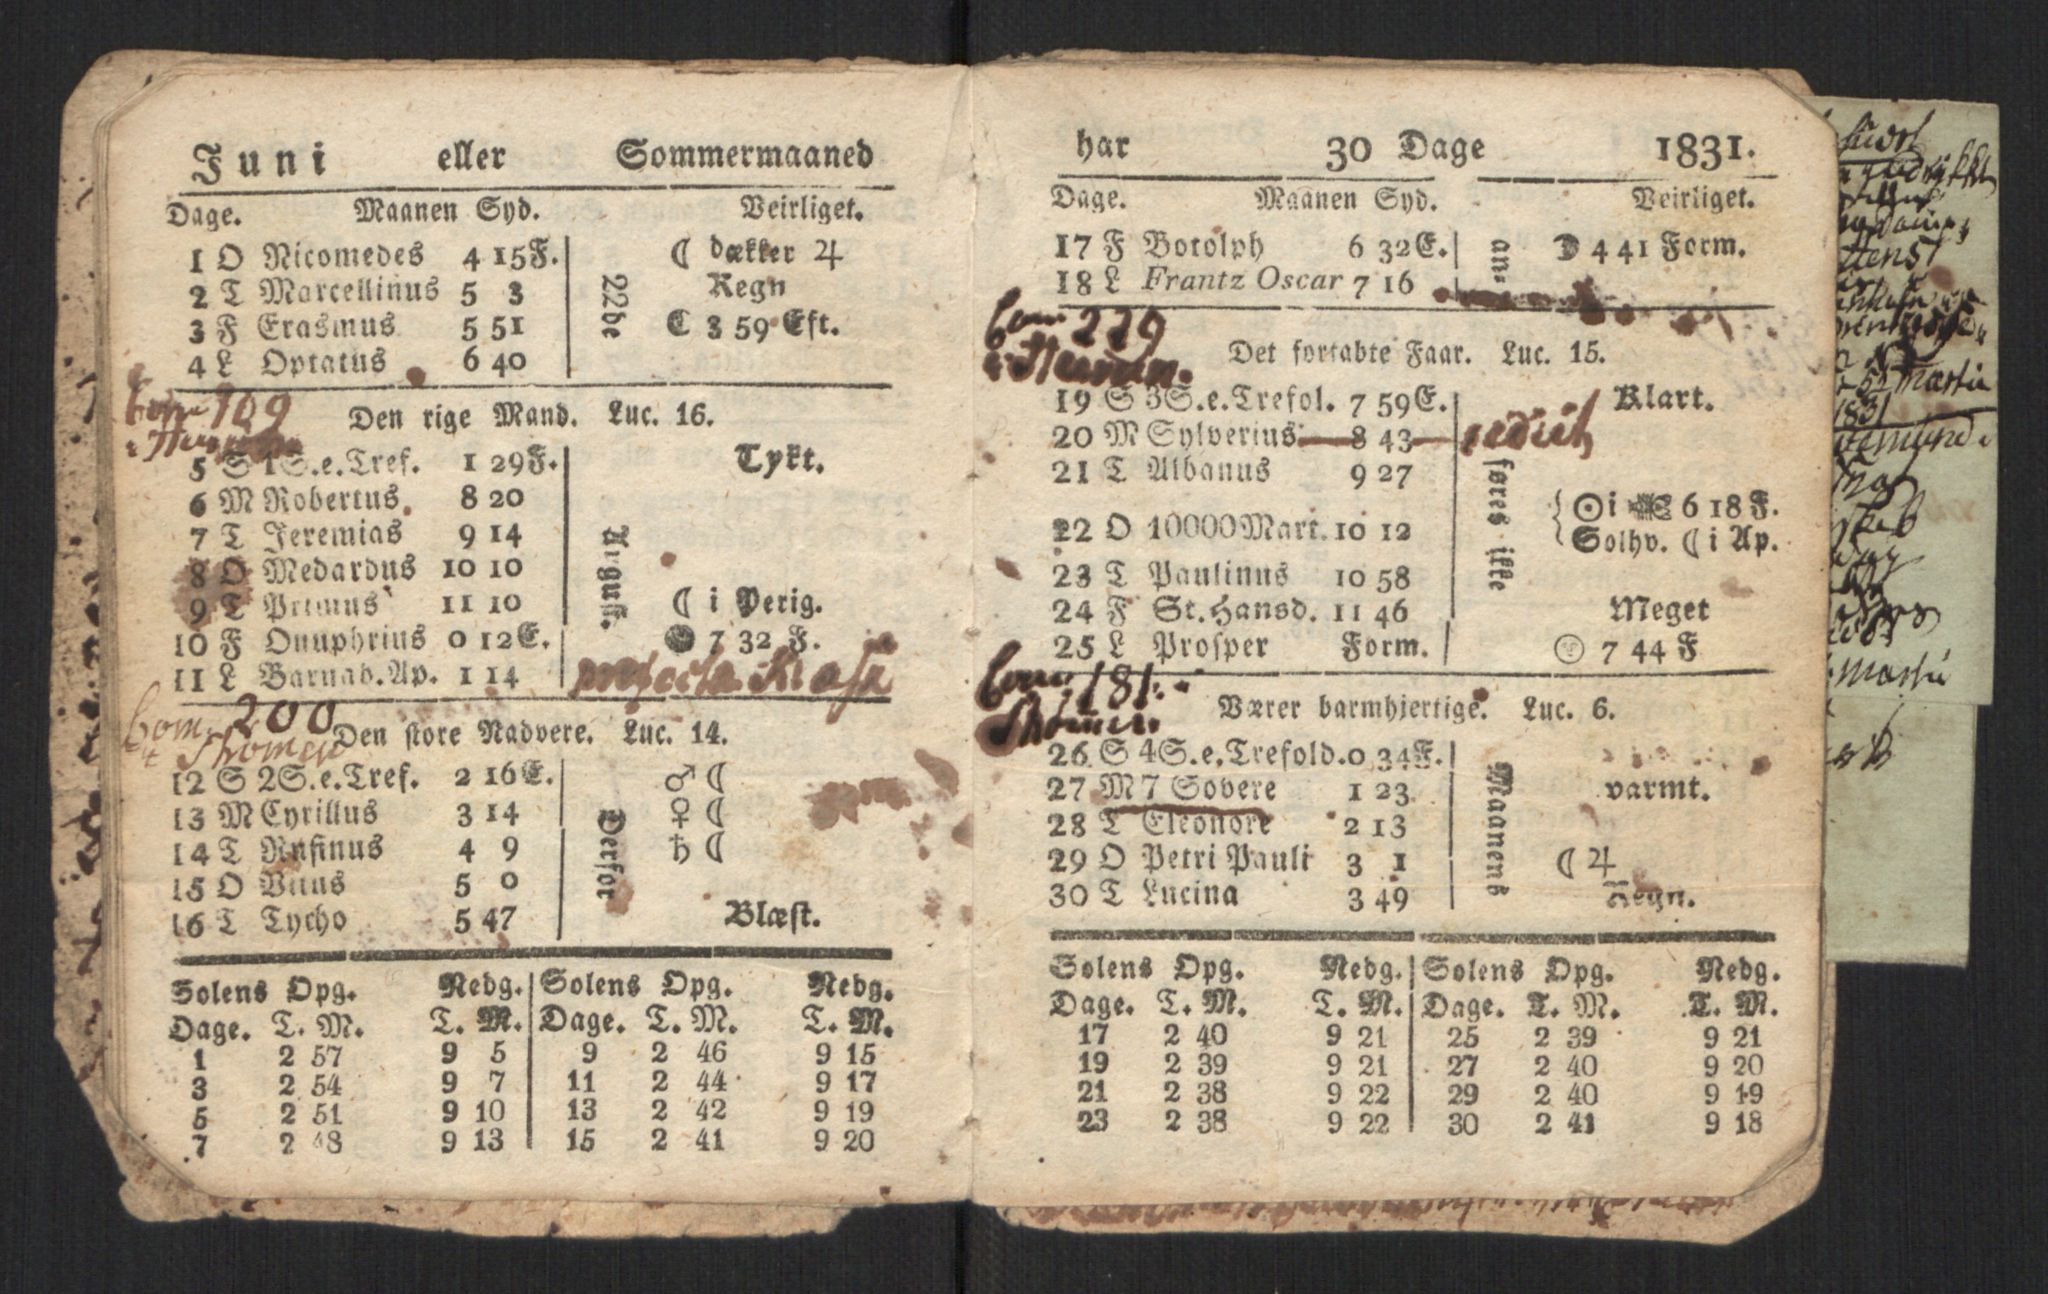 Juni eller Sommermaaned
Dage. Maanen Syd. Veirliget.
1 O Nicomedes 4 15F. ☾ dækker ♃
2 T Marcellinus 5 3 Regn
3 F Erasmus 5 51 ☾ 3 59 Eft.
4 L Optatus 6 40
22de
109
Den rige Mand. Luc. 16.
5 S 1S.e.Tref. 1 29F. Tykt.
6 M Robertus 8 20
7 T Jeremias 9 14
8 O Medardus 10 10
9 T Primus 11 10 ☾ i Perig.
10 F Onuphrius 0 12E. ● 7 32 F.
11 L Barnab.Ap. 1 14
August.
200
Den store Nadvere. Luc. 14.
12 S 2S.e.Tref. 2 16E. ♂ ☾
13 M Cyrillus 3 14 ♀ ☾
14 T Rufinus 4 9 ♄ ☾
15 O Vitus 5 0
16 T Tycho 5 47 Blæst.
Derfor
Solens Opg. Nedg. Solens Opg. Nedg.
Dage. T. M. T. M. Dage. T. M. T. M.
1 2 57 9 5 9 2 46 9 15
3 2 54 9 7 11 2 44 9 17
5 2 51 9 10 13 2 42 9 19
7 2 48 9 13 15 2 41 9 20
har 30 Dage 1831.
Dage. Maanen Syd. Veirliget.
17 F Botolph 6 32E. ☽ 4 41 Form.
18 L Frantz Oscar 7 16
an-
229
Det fortabte Faar. Luc. 15.
19 S 3S.e.Trefol. 7 59E. Klart.
20 M Sylverius 8 43
21 T Albanus 9 27
22 O 10000Mart. 10 12 ☉ i ♋ 6 18 F.
Solhv. ☾ i Ap.
23 T Paulinus 10 58
24 F St.Hansd. 11 46 Meget
25 L Prosper Form. 7 44 F
føres ikke
181
Værer barmhjertige. Luc. 6.
26 S 4S.e.Trefold. 0 34F.
27 M 7 Sovere 1 23 varmt.
28 T Eleonore 2 13
29 O Petri Pauli 3 1 ☾ ♃
30 T Lucina 3 49 Regn.
Maanens
Solens Opg. Nedg. Solens Opg. Nedg.
Dage. T. M. T. M. Dage. T. M. T. M.
17 2 40 9 21 25 2 39 9 21
19 2 39 9 21 27 2 40 9 20
21 2 38 9 22 29 2 40 9 19
23 2 38 9 22 30 2 41 9 18
1831